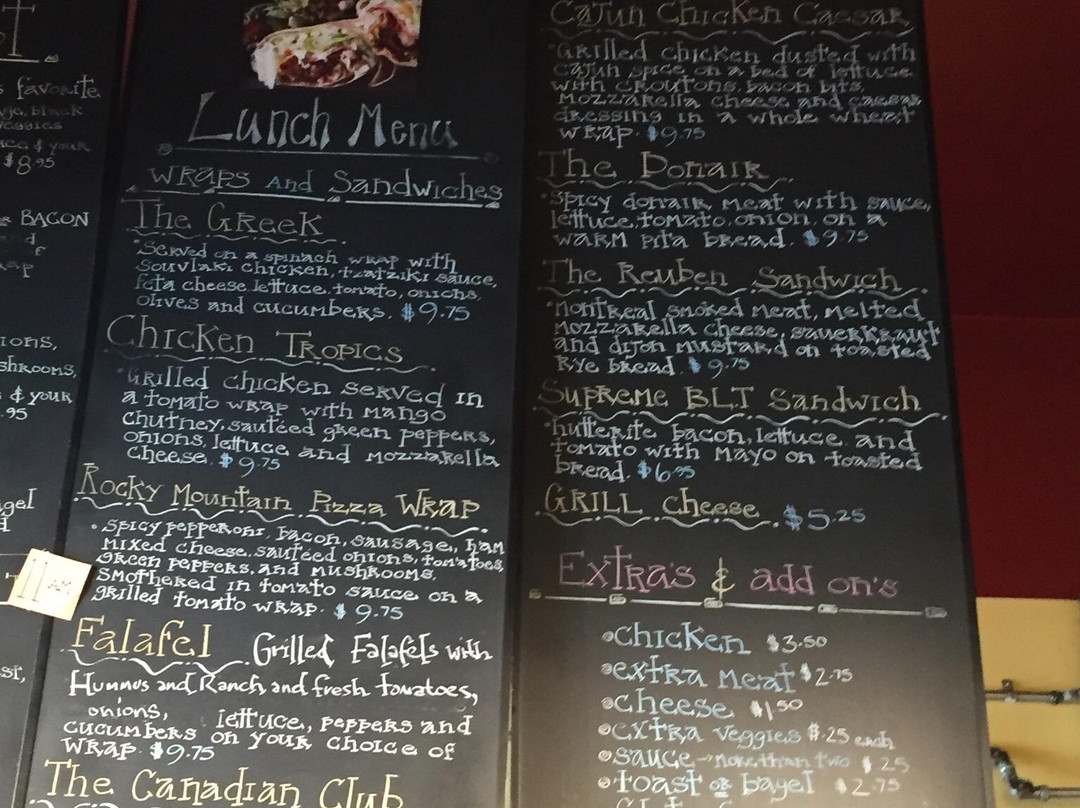 favorite
black
veggies
& your
$8.95
BACON
shrooms,
& your
.95
11 AM
Lunch Menu
Wraps And Sandwiches
The Greek
Served on a spinach wrap with
souvlaki chicken, tzatziki sauce,
feta cheese, lettuce, tomato, onions,
olives and cucumbers. $9.75
Chicken Tropics
Grilled chicken served in
a tomato wrap with mango
chutney, sautéed green peppers,
onions, lettuce and mozzarella
cheese. $9.75
Rocky Mountain Pizza Wrap
• Spicy pepperoni, bacon, sausage, ham
mixed cheese, sautéed onions, tomatoes,
green peppers, and mushrooms,
smothered in tomato sauce on a
grilled tomato wrap. $9.75
Falafel Grilled Falafels with
Hummus and Ranch and fresh tomatoes,
onions, lettuce, peppers and
cucumbers on your choice of
wrap. $9.75
The Canadian Club
Cajun Chicken Caesar
Grilled chicken dusted with
cajun spice on a bed of lettuce
with croutons, bacon bits,
mozzarella cheese and caesar
dressing in a whole wheat
wrap. $9.75
The Donair
Spicy donair meat with sauce,
lettuce, tomato, onion, on a
warm pita bread. $9.75
The Reuben Sandwich
Montreal smoked meat, melted
mozzarella cheese, sauerkraut
and dijon mustard on toasted
Rye bread. $9.75
Supreme BLT Sandwich
hutterite bacon, lettuce, and
tomato with mayo on toasted
bread. $6.95
Grill cheese $5.25
Extra's & add on's
chicken $3.50
extra meat $2.75
cheese $1.50
extra veggies $.25 each
sauce → more than two $.25
toast or bagel $2.75